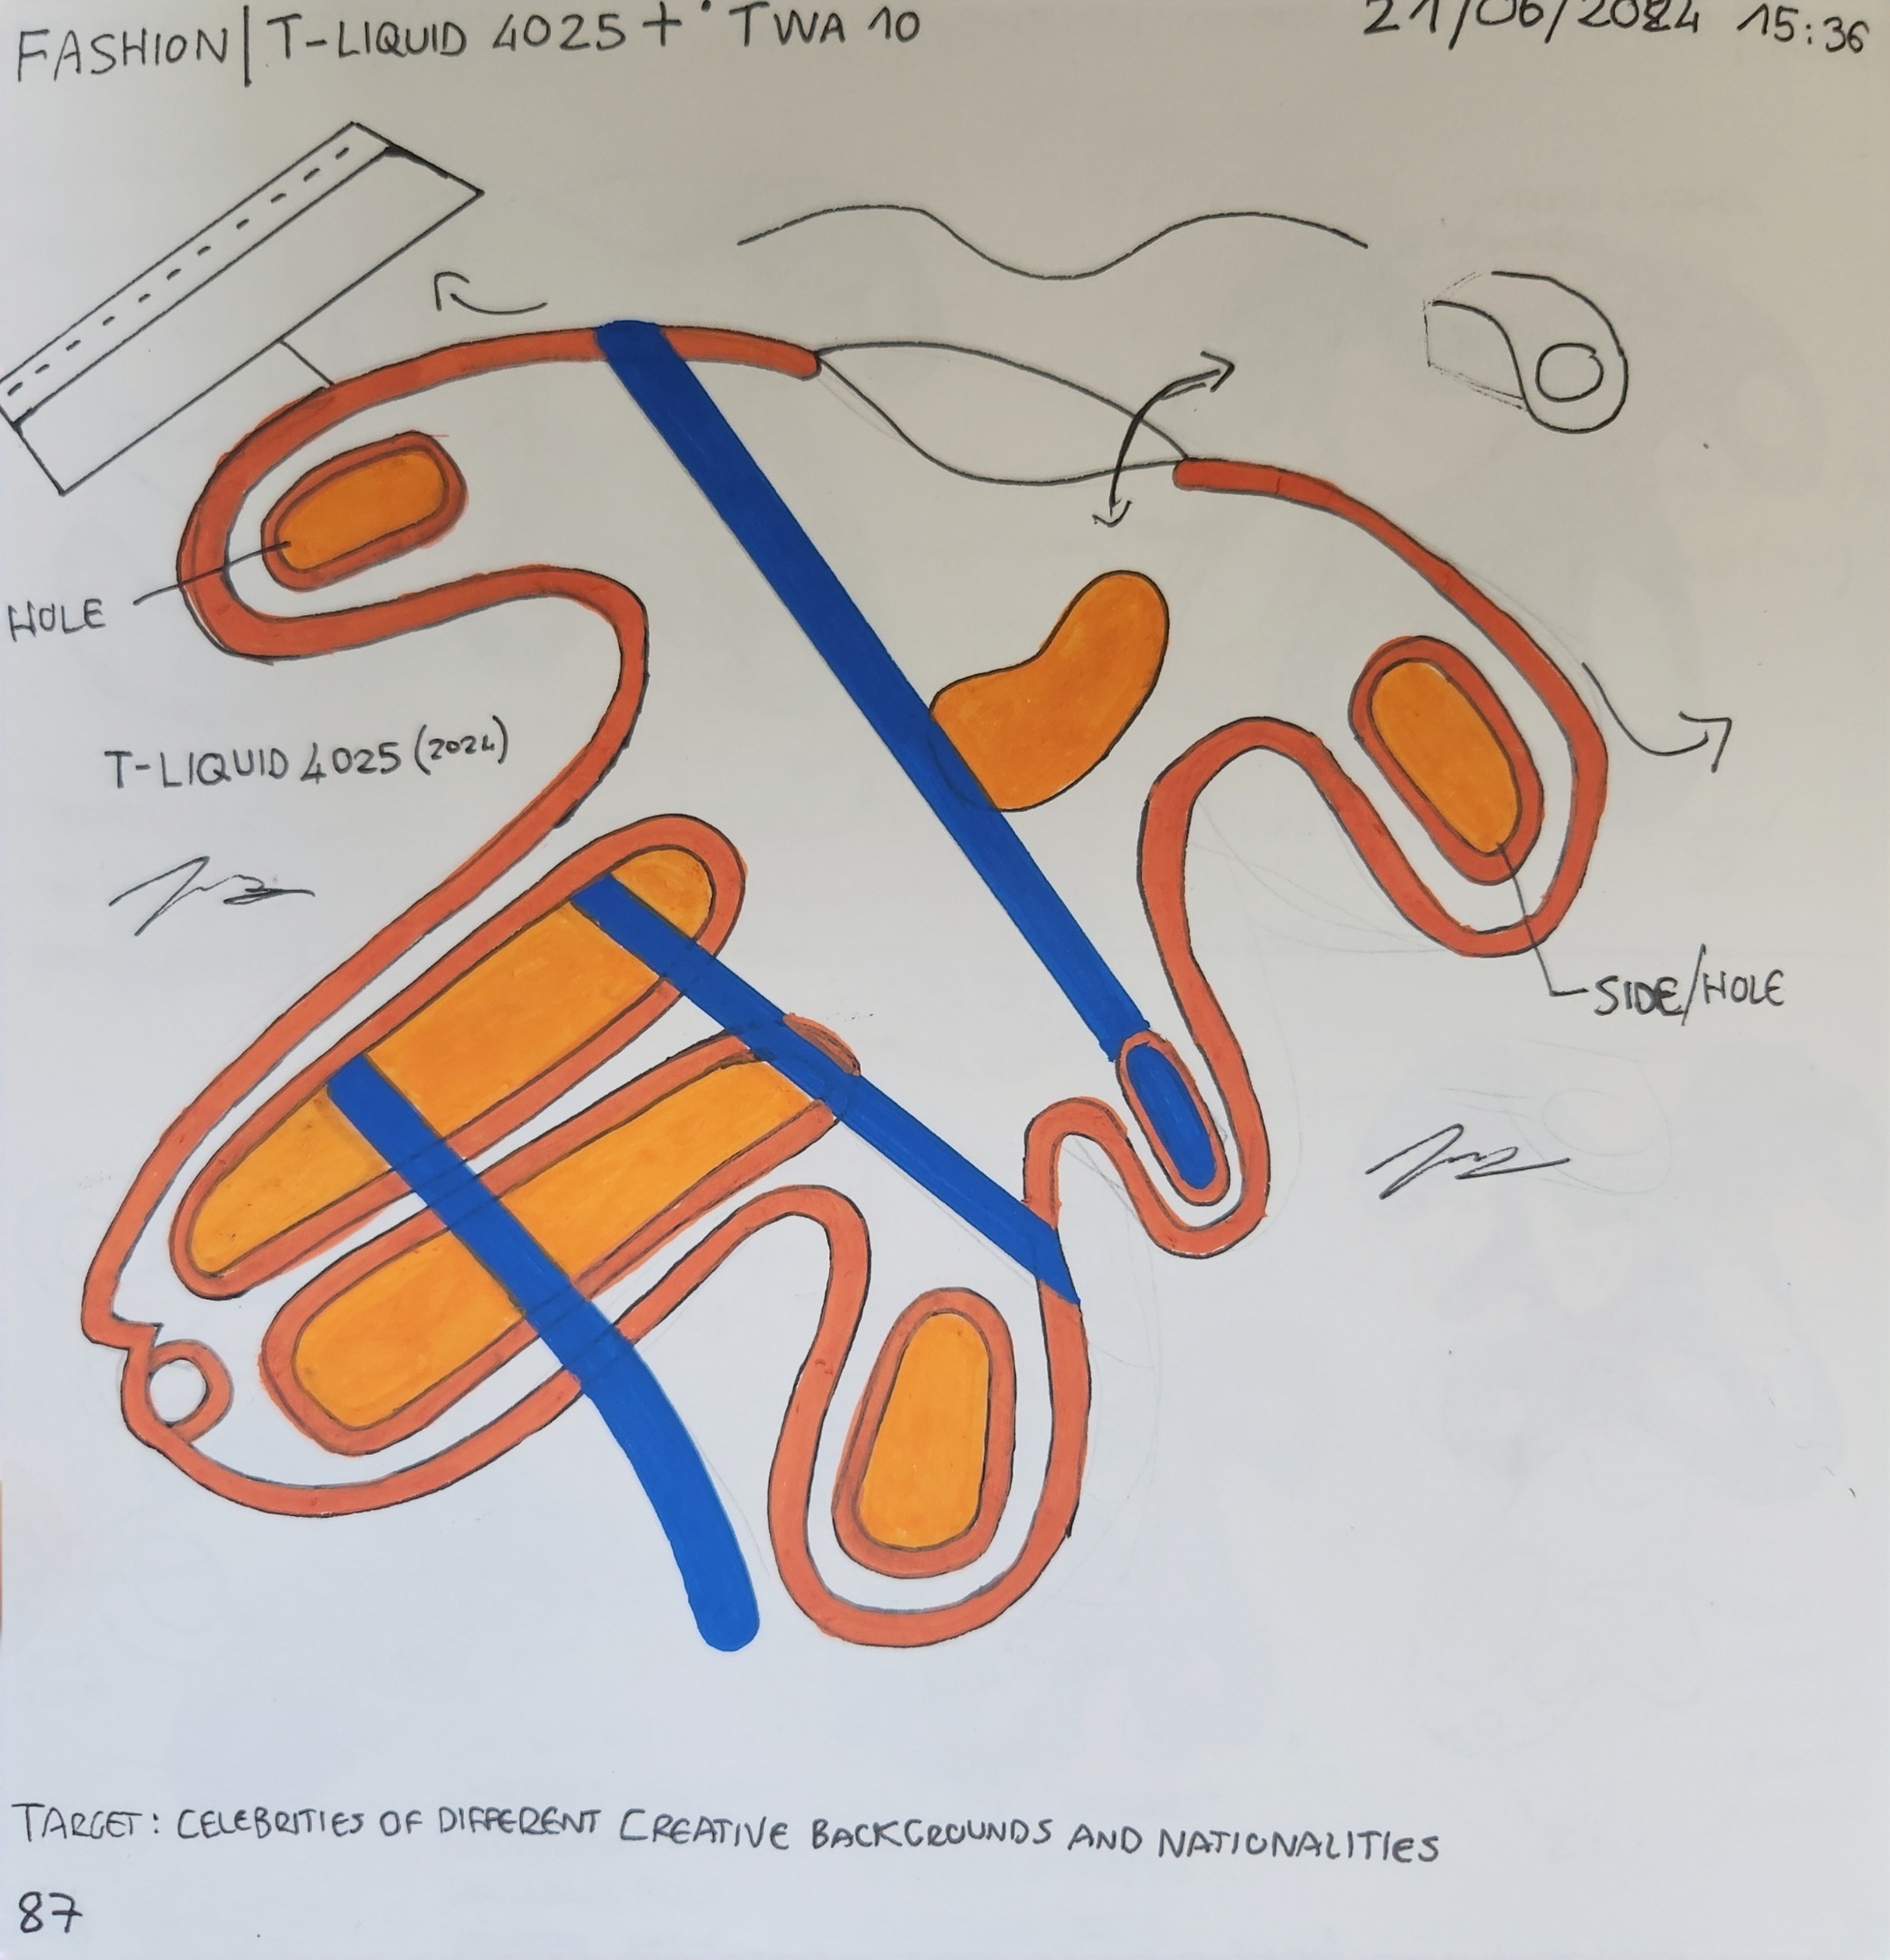 FASHION | T-LIQUID 4025 + TWA 10
21/06/2024 15:36
HOLE
T-LIQUID 4025 (2024)
SIDE/HOLE
TARGET: CELEBRITIES OF DIFFERENT CREATIVE BACKGROUNDS AND NATIONALITIES
87